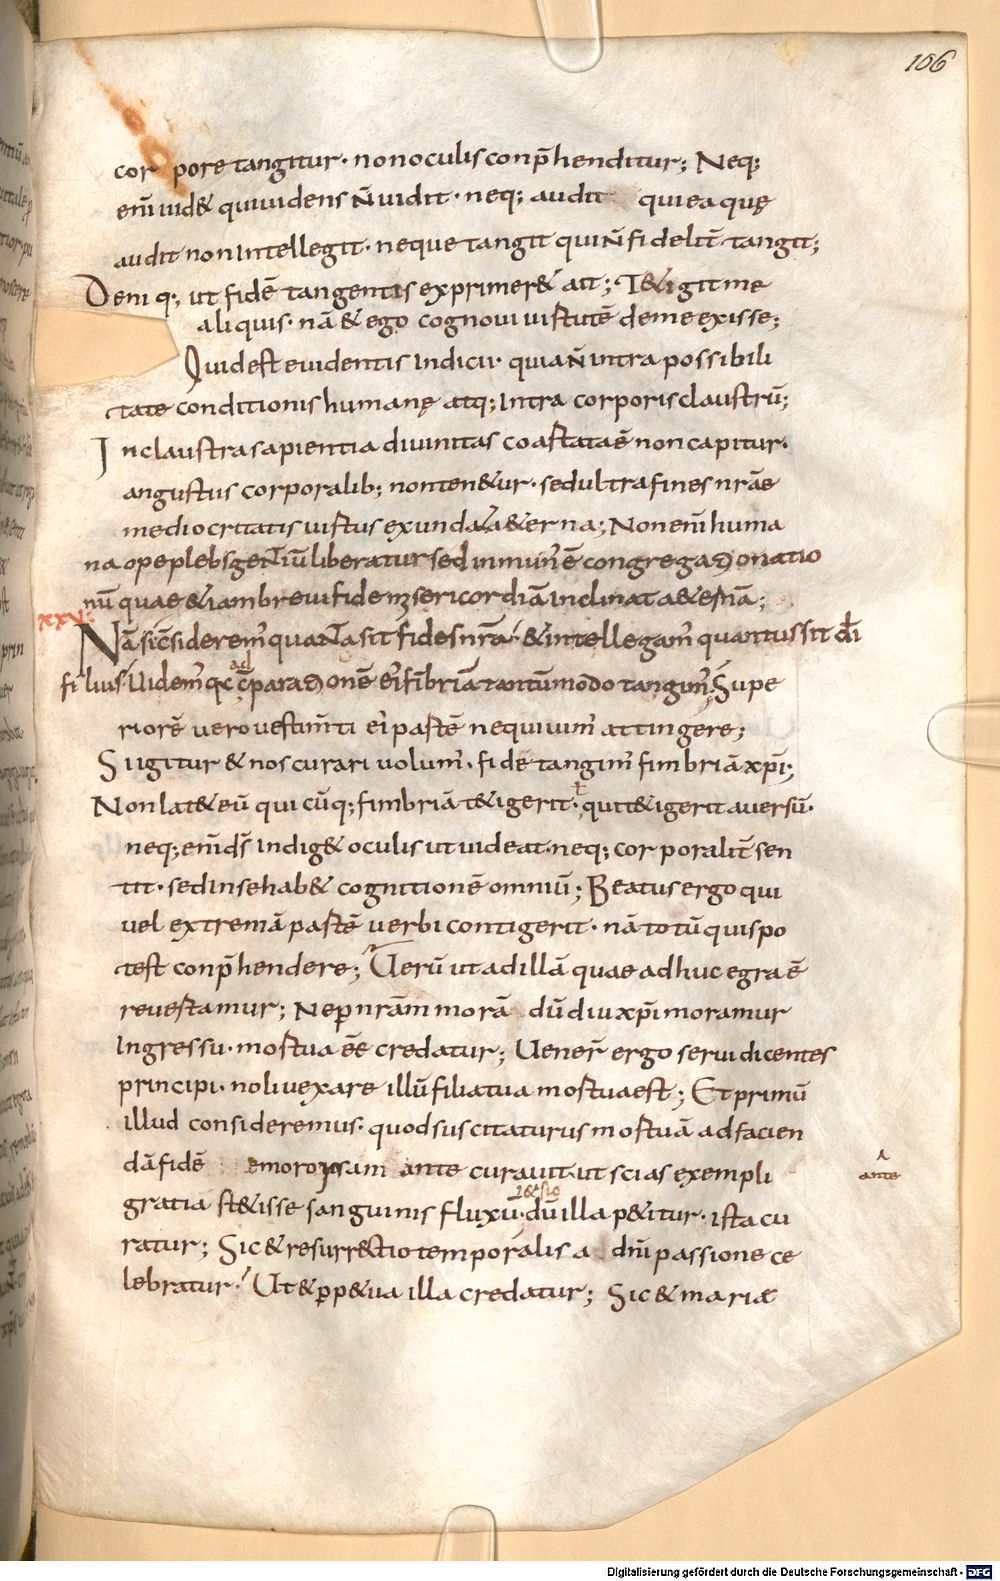 106
cor pore tangitur· non oculis conp̄henditur; Neq;
eni᷎ uid& qui uidens n̄ uidit· neq; audit qui ea quę
audit non intellegit· neque tangit qui n̄ fidelit̄ tangit;
Deniq; ut fidē tangentis exprimer& ait; T&igit me
aliquis· nā & ego cognoui uirtutē de me exisse;
Quid est euidentis indicii· quia n̄ intra possibili
tate conditionis humanę atq; intra corporis claustrū;
In claustra sapientia diuinitas coartata ē non capitur·
angustus corporalib; non ten&ur· sed ultra fines nr̄ae
mediocritatis uirtus exundat a&erna; Non eni᷎ huma
na ope plebs gentiū liberatur sed di munꝰ ē congregatio natio
nū quae &iam breui fide misericordiā inclinat a&ernā;
XXV;
Nā si c̄siderem᷒ quanta sit fides nr̄a· & intellegam᷒ quantus sit dī
filius· Uidem᷒ qđ ad c̄parationē ei᷒ fībriā tantūmodo tangim᷒· Supe
riorē uero uestim̄ti ei᷒ partē nequiuim᷒ attingere;
Si igitur & nos curari uolum᷒· fide tangim᷒ fimbriā xp̄i;
Non lat& eū quicūq; fimbriā t&igerit· qui t&igerit auersū·
neq; eni᷎ ds̄ indig& oculis ut uideat· neq; corporalit̄ sen
tit· sed in se hab& cognitionē omniū; Beatus ergo qui
uel extremā partē uerbi contigerit· nā totū quis po
test conp̄hendere; Uerū ut ad illā quae adhuc egra ē
reuertamur; Ne ꝑ nr̄am morā dū diu xp̄i moramur
ingressu· mortua ēe credatur; Uener̄ ergo serui dicentes
principi· noli uexare illū filia tua mortua est; Et primū
illud consideremus· quod suscitaturus mortuā ad facien
dā fidē emoroysam ante curauit· ut scias exempli
ante
gratia st&isse sanguinis fluxū· dū illa p&itur· ista cu
ratur; Sic & resurrectio temporalis a dn̄i passione ce
lebratur· Ut & ꝑp&ua illa credatur; Sic & maria
Digitalisierung gefördert durch die Deutsche Forschungsgemeinschaft - DFG